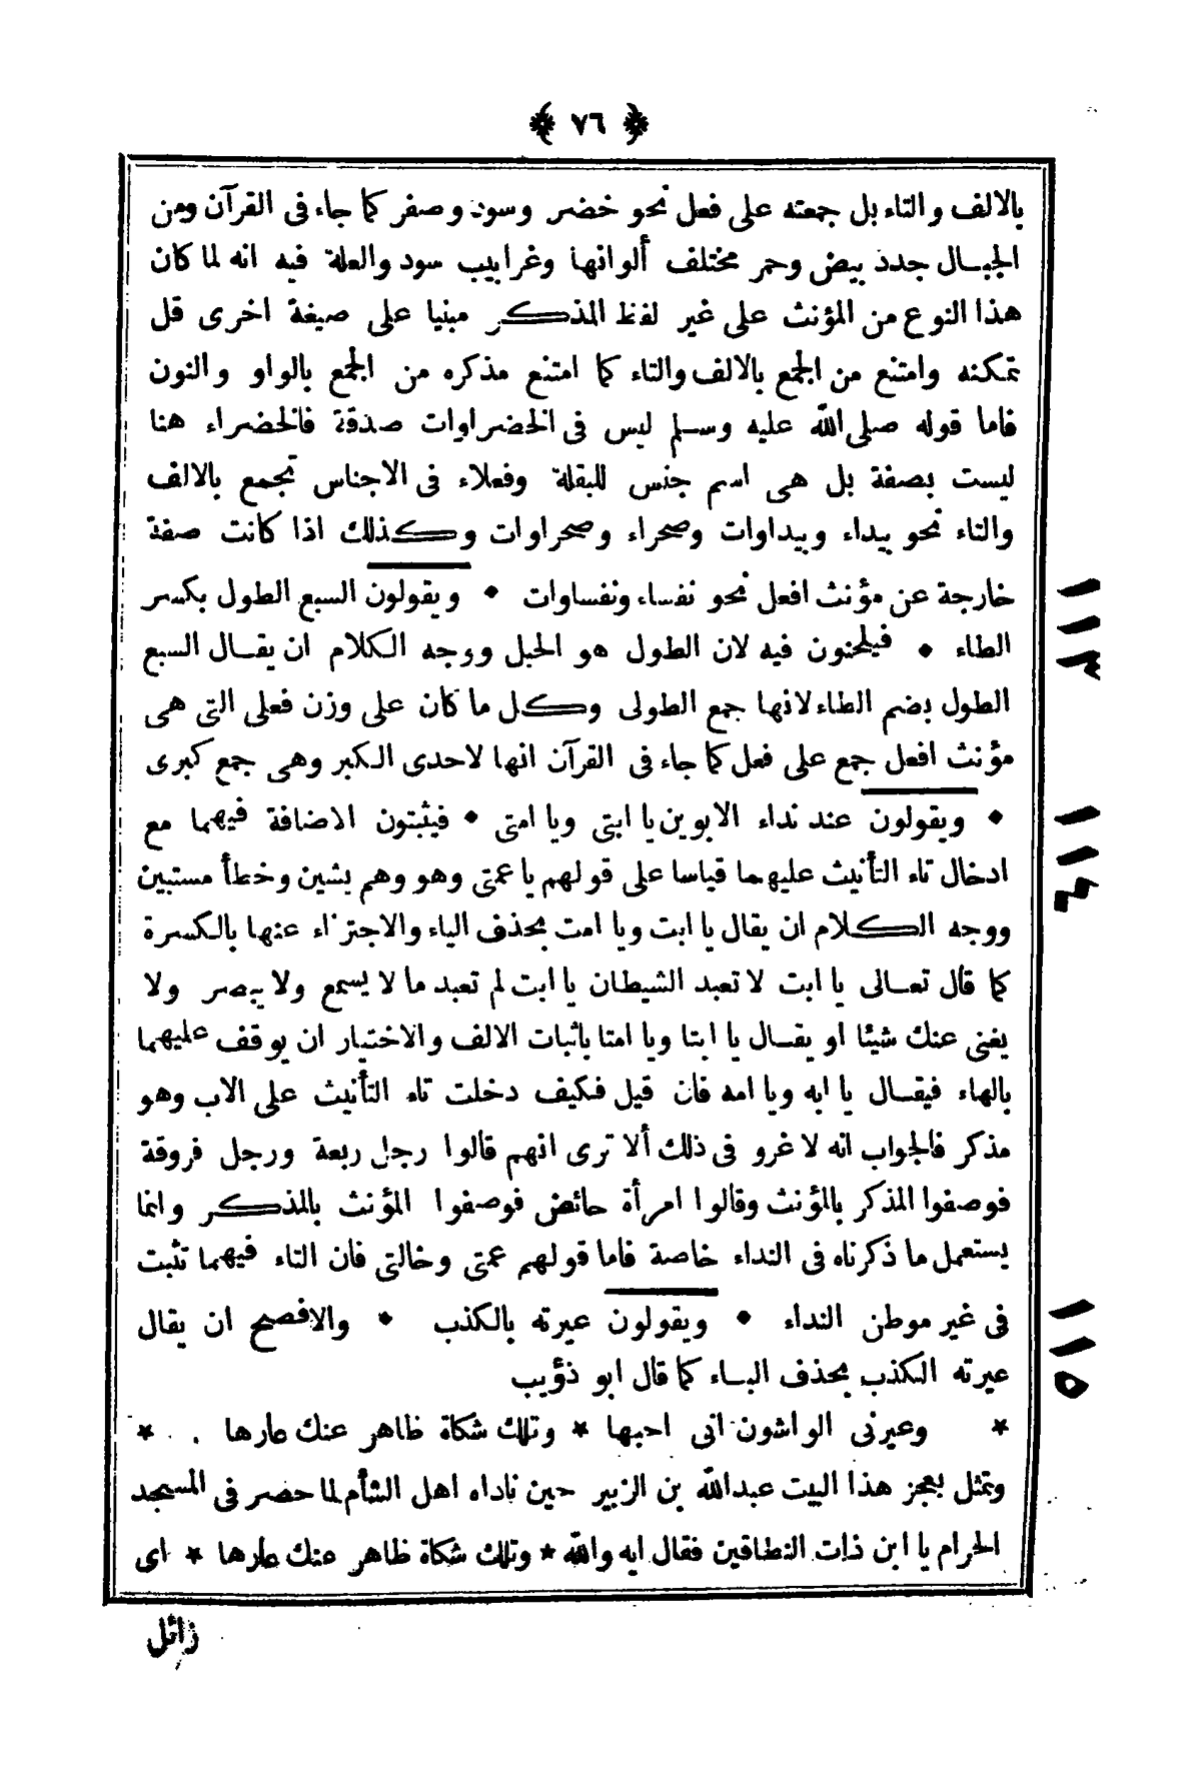 ﴿ ٧٦ ﴾
بالالف والتاء بل جمعته على فعل نحو خضر وسود وصفر كما جاء فى القرآن ومن
الجبال جدد بيض وحمر مختلف ألوانها وغرابيب سود والعلة فيه انه لما كان
هذا النوع من المؤنث على غير لفظ المذكر مبنيا على صيغة اخرى قل
تمكنه وامتنع من الجمع بالالف والتاء كما امتنع مذكره من الجمع بالواو والنون
فاما قوله صلى الله عليه وسلم ليس فى الخضراوات صدقة فالخضراء هنا
ليست بصفة بل هى اسم جنس للبقلة وفعلاء فى الاجناس تجمع بالالف
والتاء نحو بيداء وبيداوات وصحراء وصحراوات وكذلك اذا كانت صفة
خارجة عن مؤنث افعل نحو نفساء ونفساوات • ويقولون السبع الطول بكسر
١١٣
الطاء • فيلحنون فيه لان الطول هو الحبل ووجه الكلام ان يقال السبع
الطول بضم الطاء لانها جمع الطولى وكل ما كان على وزن فعلى التى هى
مؤنث افعل جمع على فعل كما جاء فى القرآن انها لاحدى الكبر وهى جمع كبرى
• ويقولون عند نداء الابوين يا ابتى ويا امتى • فيثبتون الاضافة فيهما مع
١١٤
ادخال تاء التأنيث عليهما قياسا على قولهم يا عمتى وهو وهم يشين وخطأ مستبين
ووجه الكلام ان يقال يا ابت ويا امت بحذف الياء والاجتزاء عنها بالكسرة
كما قال تعالى يا ابت لا تعبد الشيطان يا ابت لم تعبد ما لا يسمع ولا يبصر ولا
يغنى عنك شيئا او يقال يا ابتا ويا امتا باثبات الالف والاختيار ان يوقف عليهما
بالهاء فيقال يا ابه ويا امه فان قيل فكيف دخلت تاء التأنيث على الاب وهو
مذكر فالجواب انه لا غرو فى ذلك ألا ترى انهم قالوا رجل ربعة ورجل فروقة
فوصفوا المذكر بالمؤنث وقالوا امرأة حائض فوصفوا المؤنث بالمذكر وانما
يستعمل ما ذكرناه فى النداء خاصة فاما قولهم عمتى وخالتى فان التاء فيهما تثبت
فى غير موطن النداء • ويقولون عيرته بالكذب • والافصح ان يقال
١١٥
عيرته الكذب بحذف الباء كما قال ابو ذؤيب
* وعيرنى الواشون انى احبها * وتلك شكاة ظاهر عنك عارها *
وتمثل بعجز هذا البيت عبدالله بن الزبير حين ناداه اهل الشأم لما حضر فى المسجد
الحرام يا ابن ذات النطاقين فقال ايه والله * وتلك شكاة ظاهر عنك عارها * اى
زائل